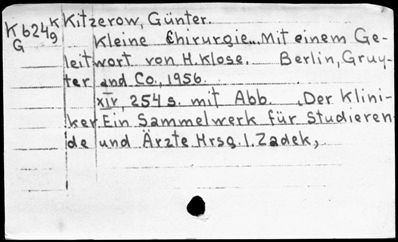 K624gK Kitzerow, Günter.
G Kleine Chirurgie... Mit einem Ge-
leitwort von H. Klose. Berlin, Gruy-
ter and Co., 1956.
XIV, 254 s. mit Abb. „Der Klini-
ker. Ein Sammelwerk für Studieren-
de und Ärzte. Hrsg. I. Zadek,